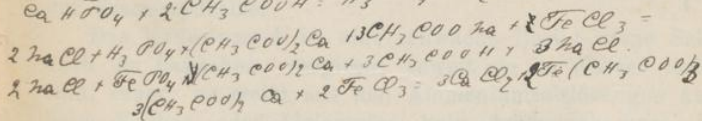 CaHPO4 + 2CH3COOH = H3
2NaCl + H3PO4 + (CH3COO)2Ca 13CH3COONa + 2FeCl3 =
2NaCl + FePO4 + (CH3COO)2Ca + 3CH3COOH + 3NaCl.
3(CH3COO)2Ca + 2FeCl3 = 3CaCl2 + 2Fe(CH3COO)3